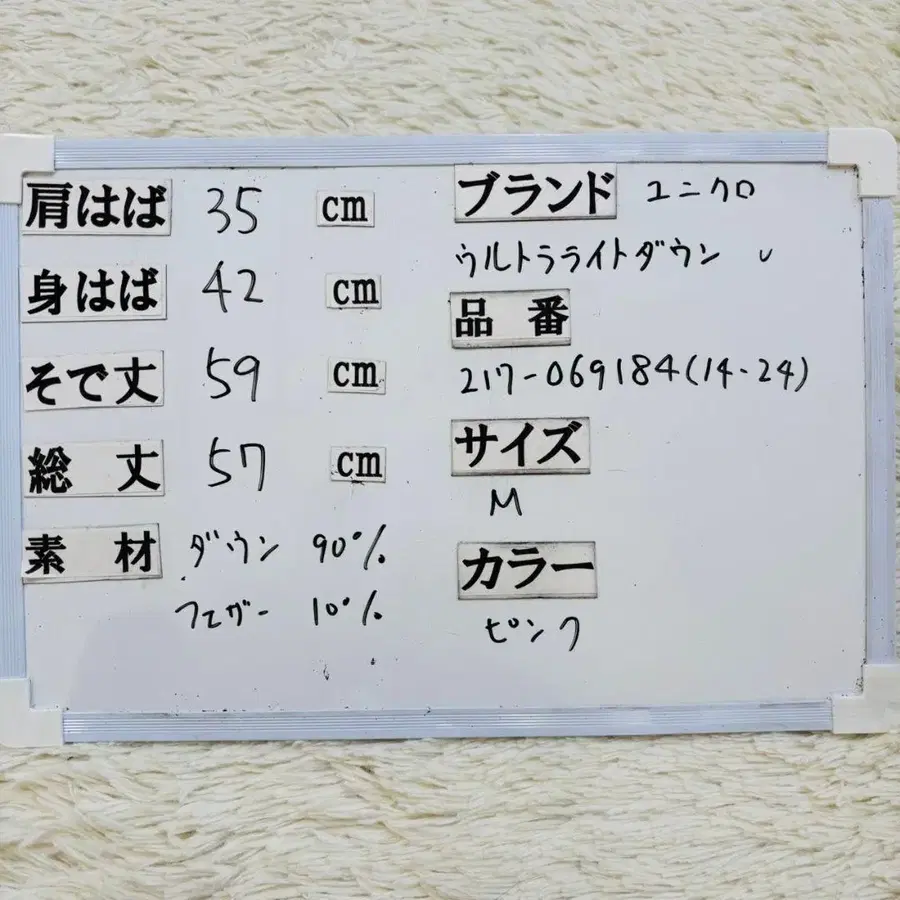 肩はば 35 cm
身はば 42 cm
そで丈 59 cm
総丈 57 cm
素材 ダウン 90%
フェザー 10%
ブランド ユニクロ
ウルトラライトダウン
品番
217-069184(14-24)
サイズ
M
カラー
ピンク